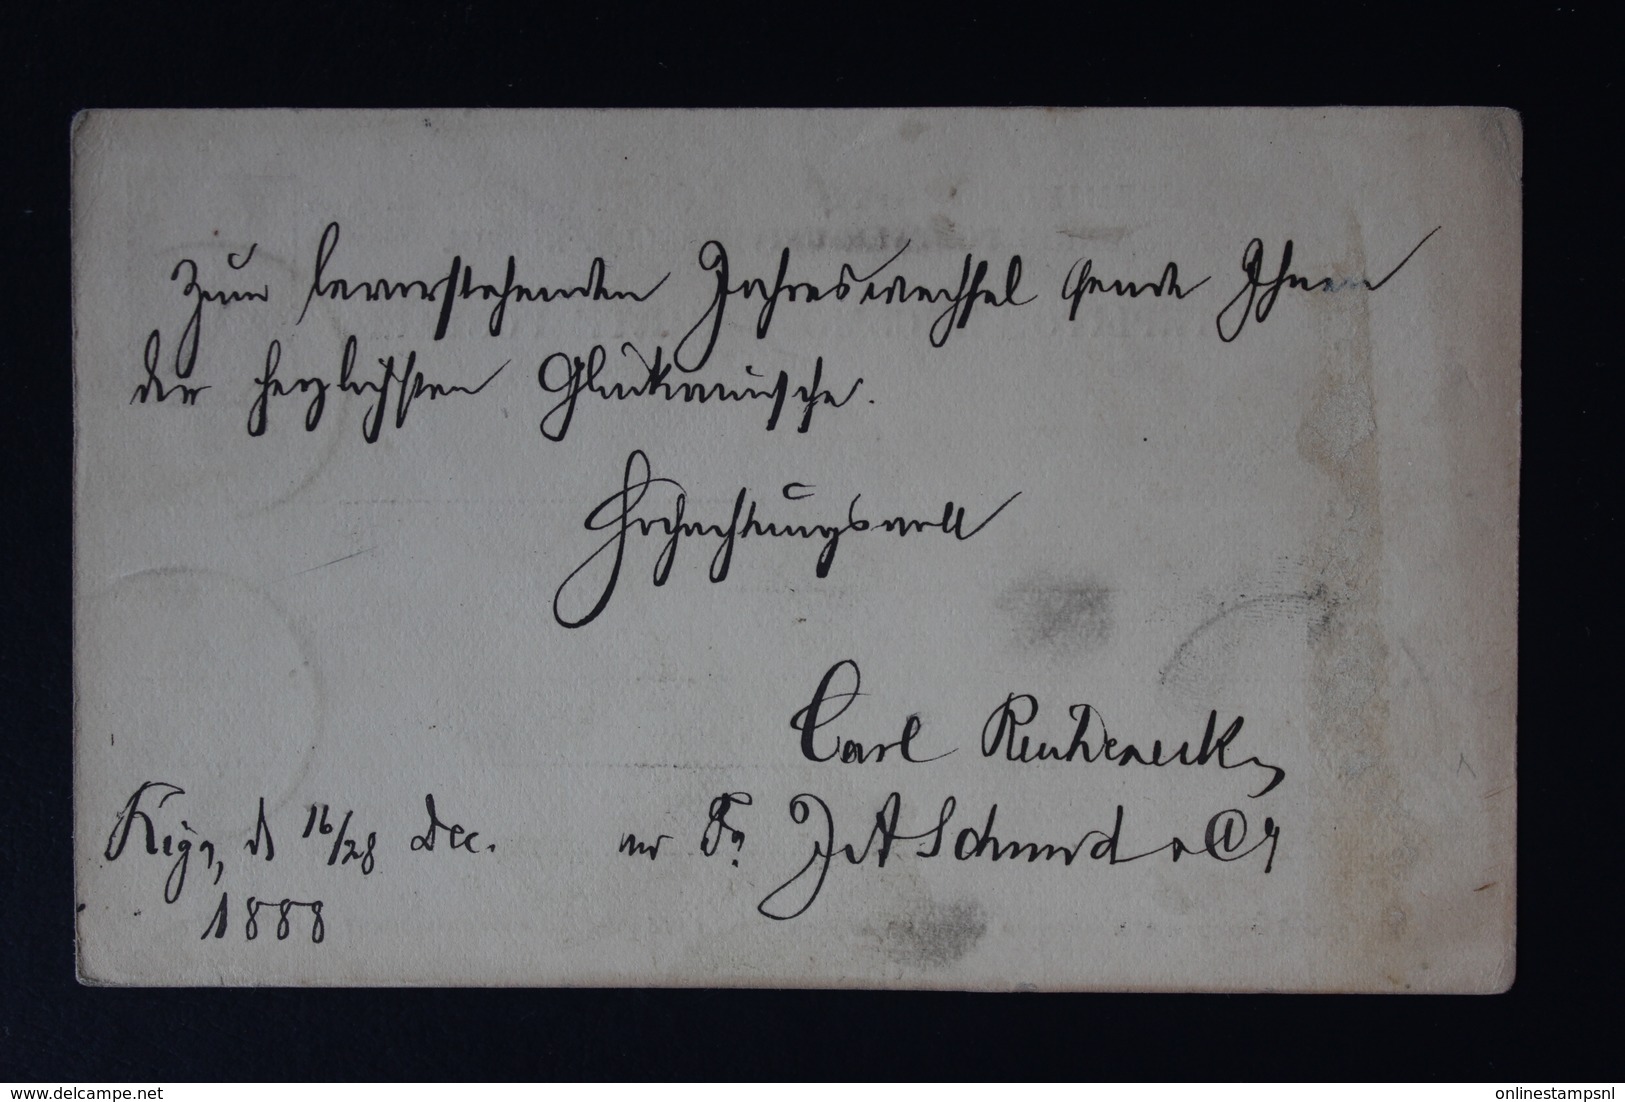 Zum bevorstehenden Jahreswechsel sende Ihnen
die herzlichsten Glückwünsche.
Hochachtungsvoll
Carl
Riga, d 16/28 Dec.
Fa J A Schmidt & Co
1888
onlinestampsnl